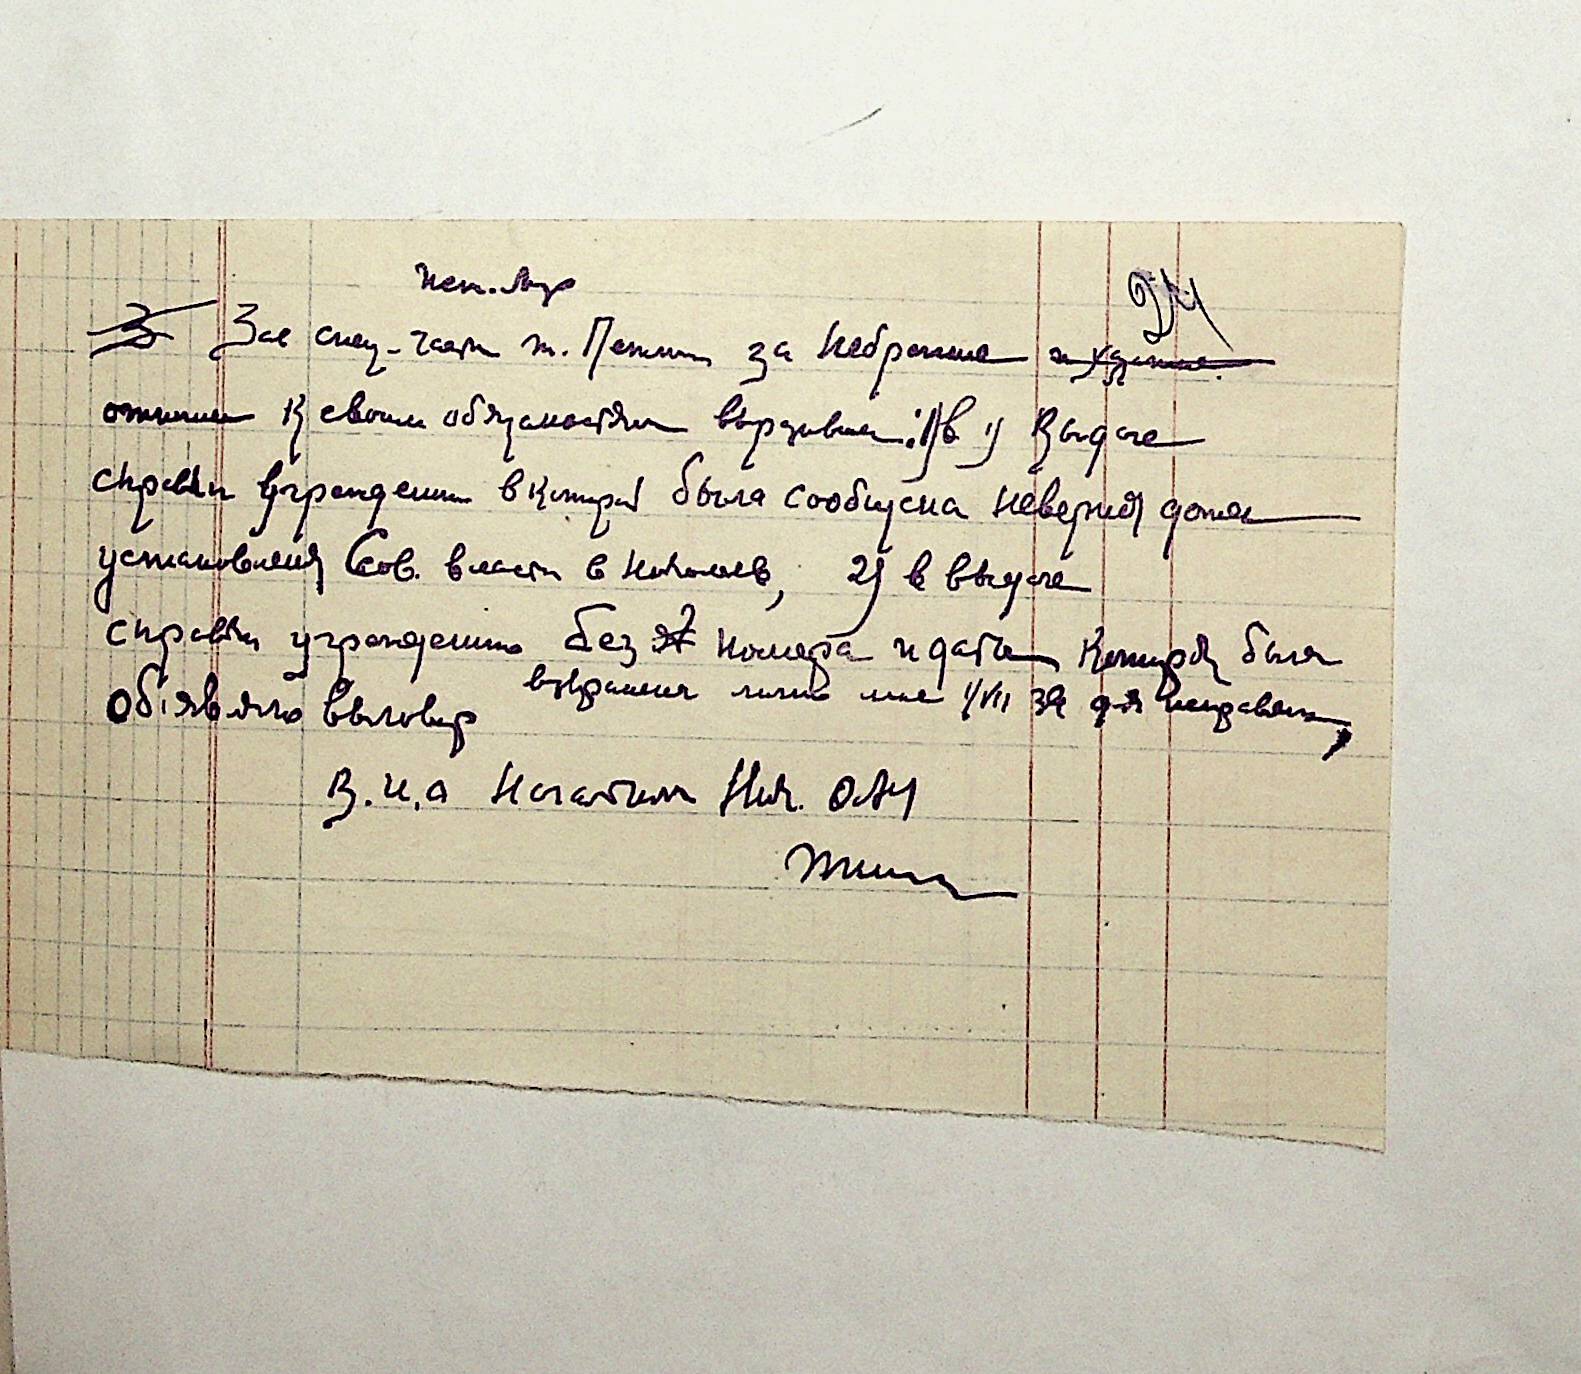 24
Зав спец-части т. за небрежное
отношение к своим обязанностям выразившееся: 1) в выдаче
справки учреждению в которой была сообщена неверная дата
установления Сов. власти в Николаеве, 2) в выдаче
справки учреждению без номера и даты которая была
возвращена лично мне 1/VII 39 для исправления,
объявляю выговор
В.и.о Начальника Ник. ОАУ